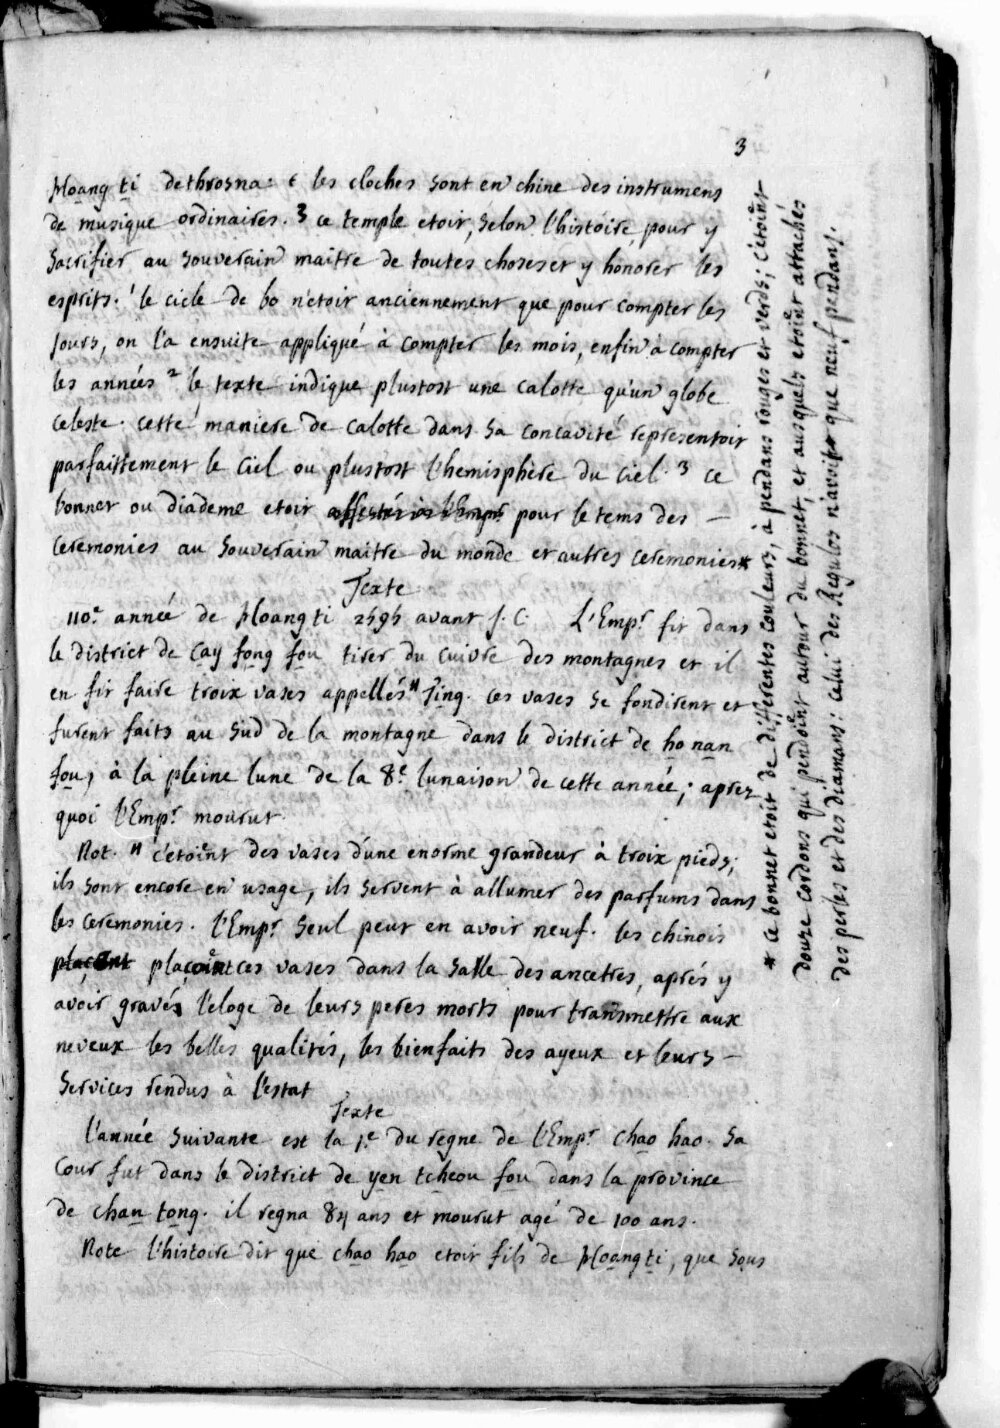 3
Hoang ti dethrosna. c les cloches sont en chine des instrumens
de musique ordinaires. 3 ce temple etoit, selon l'histoire, pour y
sacrifier au souverain maitre de toutes choses et y honorer les
esprits. 1 le cicle de 60 n'etoit anciennement que pour compter les
jours, on l'a ensuite appliqué à compter les mois, enfin à compter
les années 2 le texte indique plustost une calotte qu'un globe
celeste. cette maniere de calotte dans sa concavité representoit
parfaittement le ciel ou plustost l'hemisphère du ciel. 3 ce
bonnet ou diademe etoit affecté à l'Emp.r pour le tems des —
ceremonies au souverain maitre du monde et autres ceremonies*
Texte
110.e année de Hoang ti 2595 avant J. C. L'Emp.r fit dans
le district de Cay fong fou tirer du cuivre des montagnes et il
en fit faire troix vases appellés" Ting. ces vases se fondirent et
furent faits au sud de la montagne dans le district de ho nan
fou, à la pleine lune de la 8.e lunaison de cette année; aprez
quoi l'Emp.r mourut.
Not. " c'etoint des vases d'une enorme grandeur à troix pieds;
ils sont encore en usage, ils servent à allumer des parfums dans
les ceremonies. l'Emp.r seul peut en avoir neuf. les chinois
placent plaçoint ces vases dans la salle des ancetres, aprés y
avoir gravés l'eloge de leurs peres morts pour transmettre aux
neveux les belles qualités, les bienfaits des ayeux et leurs —
services rendus à l'estat
Texte
l'année suivante est la 1.e du regne de l'Emp.r chao hao. sa
Cour fut dans le district de yen tcheou fou dans la province
de chan tong. il regna 84 ans et mourut agé de 100 ans.
Note l'histoire dit que chao hao etoit fils de Hoang ti, que sous
* ce bonnet etoit de differentes couleurs, à pendans rouges et verds; c'etoint
douze cordons qui pendoint autour du bonnet, et ausquels etoint attachés
des perles et des diamans: celui des Regulos n'avoit que neuf pendans.